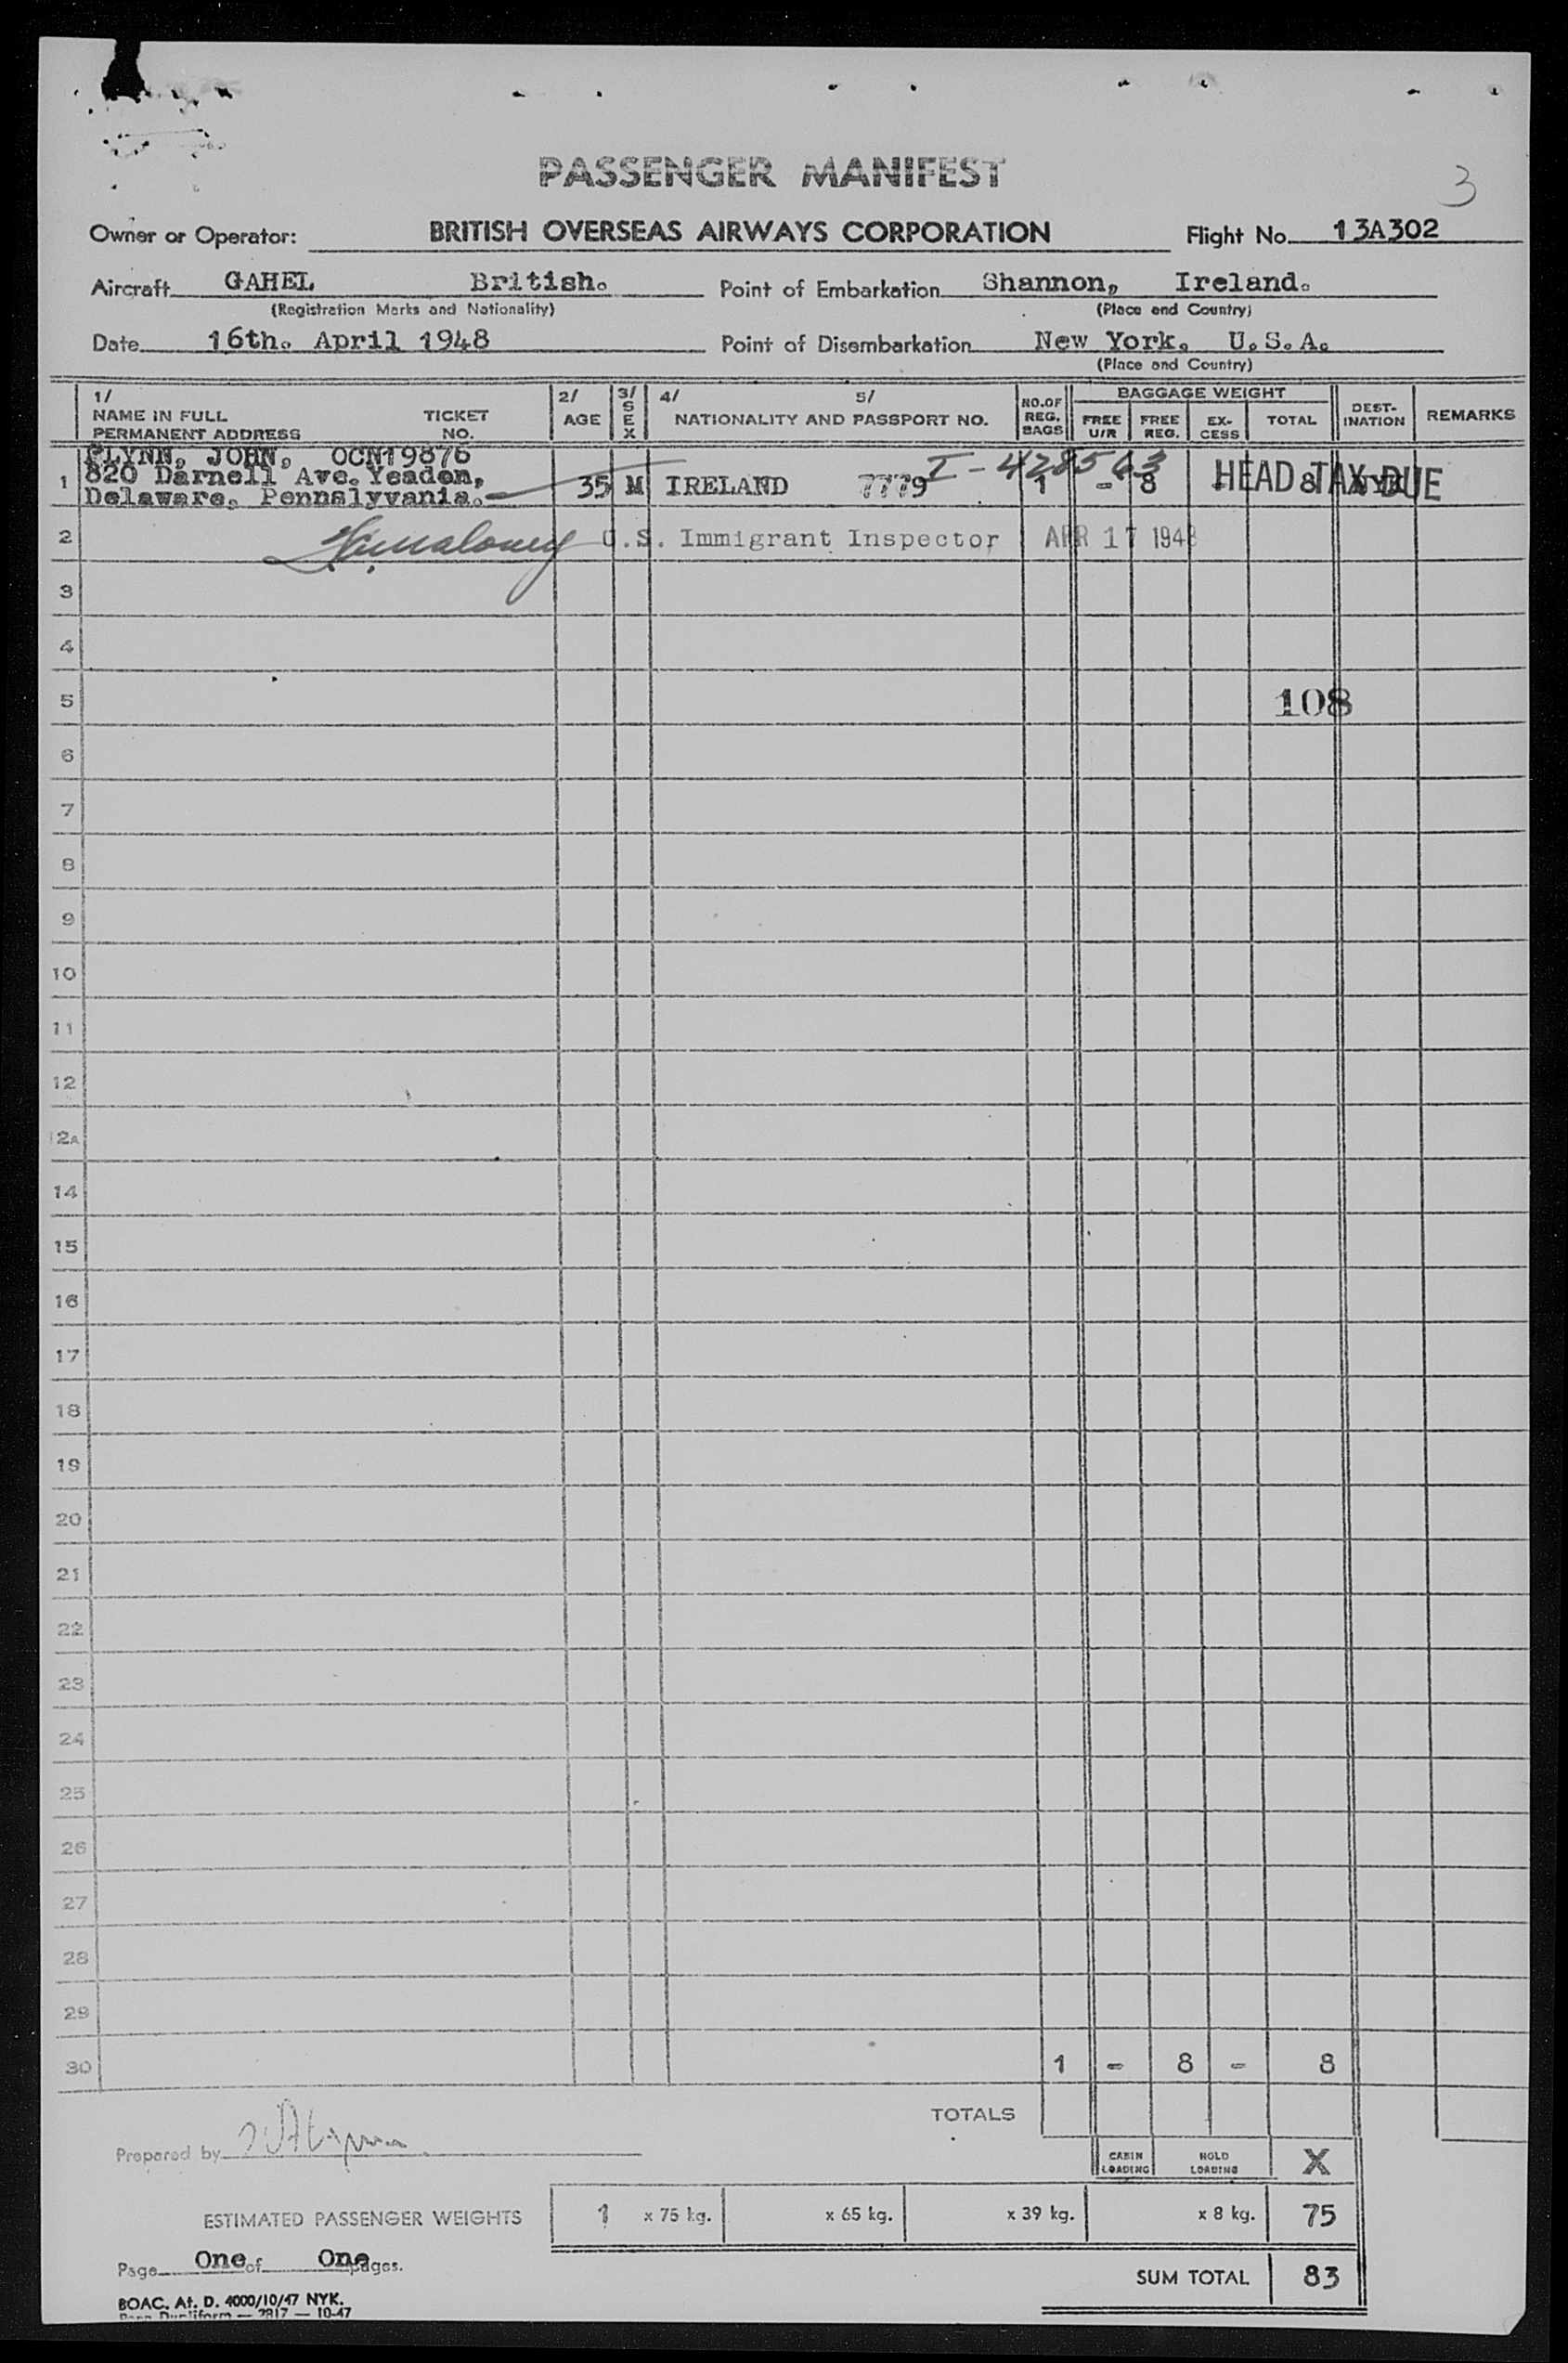 PASSENGER MANIFEST
3
Owner or Operator: BRITISH OVERSEAS AIRWAYS CORPORATION Flight No. 13A302
Aircraft GAHEL British. Point of Embarkation Shannon, Ireland.
(Registration Marks and Nationality) (Place and Country)
Date 16th. April 1948 Point of Disembarkation New York. U.S.A.
(Place and Country)
1/ NAME IN FULL PERMANENT ADDRESS TICKET NO. 2/ AGE 3/ SEX 4/ 5/ NATIONALITY AND PASSPORT NO. NO.OF REG. BAGS BAGGAGE WEIGHT FREE U/R FREE REG. EX-CESS TOTAL DEST-INATION REMARKS
FLYNN, JOHN, OCN19876
820 Darnell Ave. Yeadon,
1 Delaware, Pennslyvania. 35 M IRELAND 7779 I-428563 1 - 8 - 8 HEAD TAX DUE
2 U.S. Immigrant Inspector APR 17 1948
3
4
5 108
6
7
8
9
10
11
12
12A
14
15
16
17
18
19
20
21
22
23
24
25
26
27
28
29
30 1 - 8 - 8
TOTALS
Prepared by
CABIN LOADING HOLD LOADING X
ESTIMATED PASSENGER WEIGHTS 1 x 75 kg. x 65 kg. x 39 kg. x 8 kg. 75
Page One of One pages.
SUM TOTAL 83
BOAC. At. D. 4000/10/47 NYK.